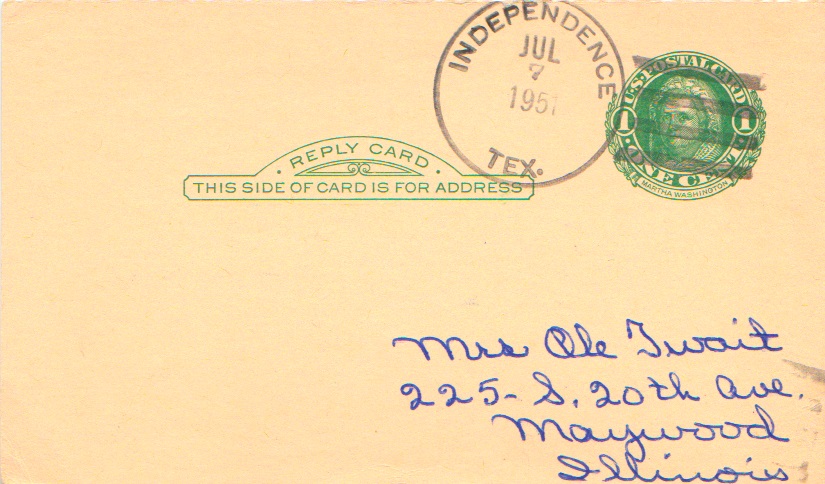 INDEPENDENCE
JUL
7
1951
TEX.
U.S. POSTAL CARD
1 1
ONE CENT
MARTHA WASHINGTON
· REPLY CARD ·
THIS SIDE OF CARD IS FOR ADDRESS
Mrs Ole Twait
225- S. 20th Ave.
Maywood
Illinois